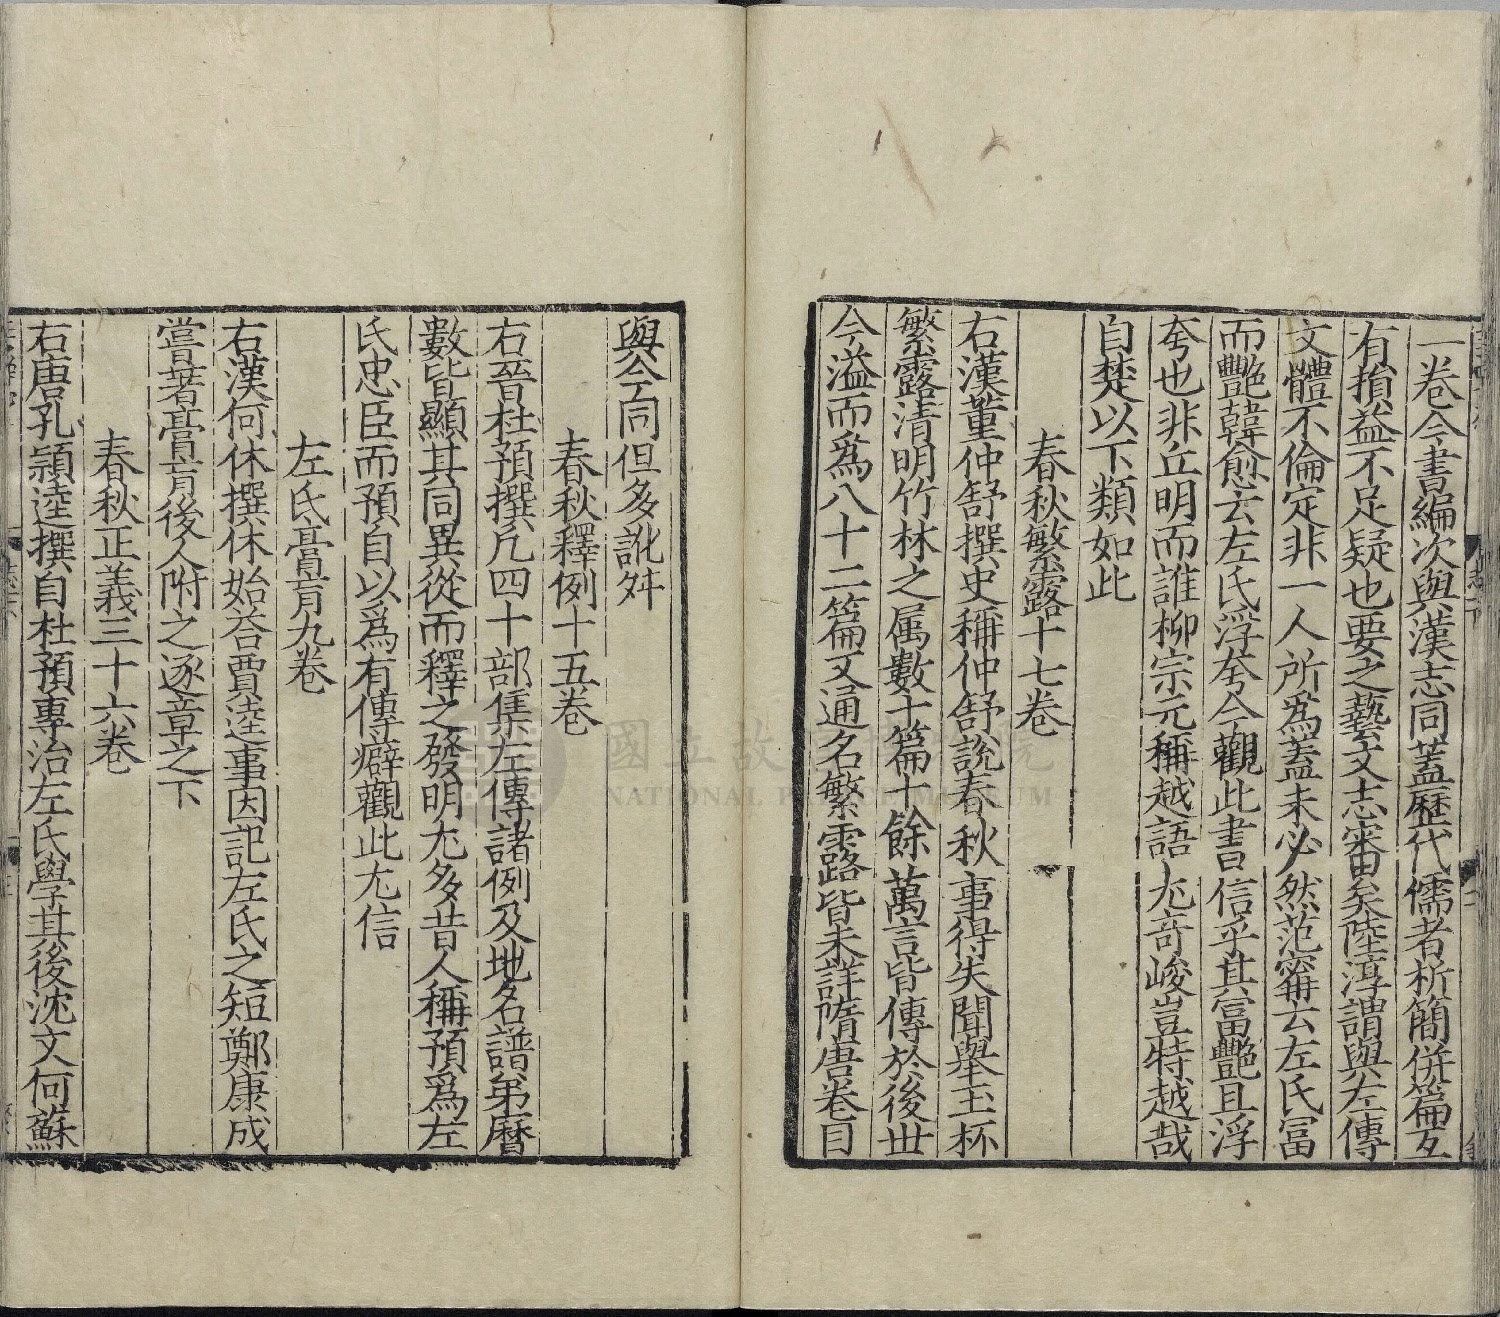 一卷今書編次與漢志同蓋歷代儒者析簡併篇互
有損益不足疑也要之藝文志審矣陸淳謂與左傳
文體不倫定非一人所爲蓋未必然范甯云左氏富
而艷韓愈云左氏浮夸今觀此書信乎其富艷且浮
夸也非丘明而誰柳宗元稱越語尤奇峻豈特越哉
自楚以下類如此
春秋繁露十七卷
右漢董仲舒撰史稱仲舒說春秋事得失聞舉玉杯
繁露清明竹林之屬數十篇十餘萬言皆傳於後世
今溢而爲八十二篇又通名繁露皆未詳隋唐卷目
與今同但多訛舛
春秋釋例十五卷
右晉杜預撰凡四十部集左傳諸例及地名譜第曆
數皆顯其同異從而釋之發明尤多昔人稱預爲左
氏忠臣而預自以爲有傳癖觀此尤信
左氏膏肓九卷
右漢何休撰休始荅賈逵事因記左氏之短鄭康成
嘗著膏肓後人附之逐章之下
春秋正義三十六卷
右唐孔穎達撰自杜預專治左氏學其後沈文何蘇
國立故宮博物院
NATIONAL PALACE MUSEUM